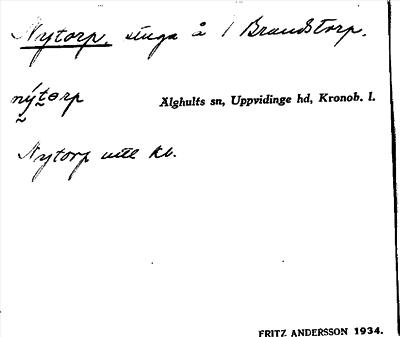 Nytorp, stuga å 1 Brandstorp.
nýtorp
Älghults sn, Uppvidinge hd, Kronob. l.
Nytorp utl kb.
FRITZ ANDERSSON 1934.